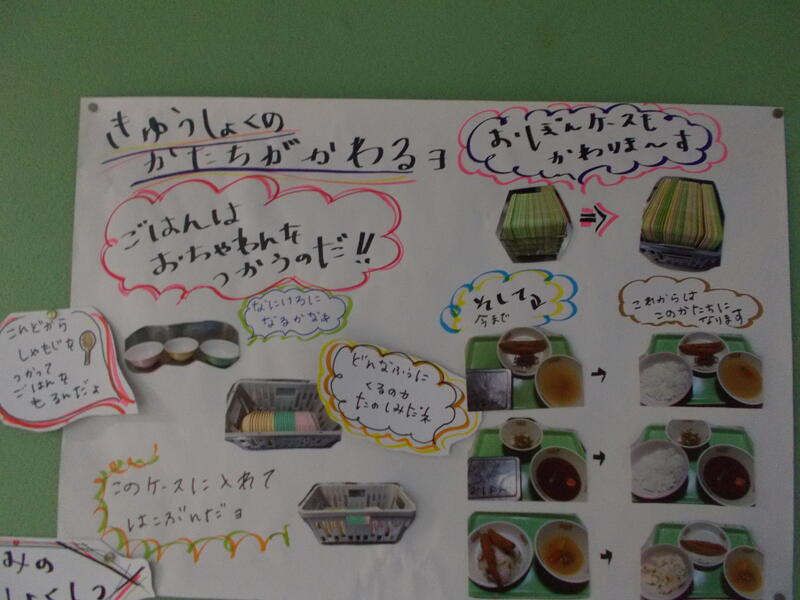 きゅうしょくの
かたちがかわるヨ
おぼんケースも
かわりま〜す
ごはんは
おちゃわんを
つかうのだ!!
なにいろに
なるかなぁ
そして
今まで
これからは
このかたちに
なります
こんどから
しゃもじを
つかって
ごはんを
もるんだよ
どんなふうに
くるのか
たのしみだネ
このケースに入れて
はこぶんだヨ
みの